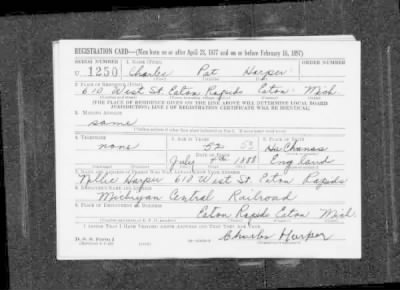 REGISTRATION CARD—(Men born on or after April 28, 1877 and on or before February 16, 1897)
SERIAL NUMBER 1. NAME (Print) ORDER NUMBER
U 1250 Charles Pat Harper
2. PLACE OF RESIDENCE (Print)
610 West St. Eaton Rapids Eaton Mich.
[THE PLACE OF RESIDENCE GIVEN ON THE LINE ABOVE WILL DETERMINE LOCAL BOARD
JURISDICTION; LINE 2 OF REGISTRATION CERTIFICATE WILL BE IDENTICAL]
3. MAILING ADDRESS
same
4. TELEPHONE 5. AGE IN YEARS 6. PLACE OF BIRTH
none 53
DATE OF BIRTH
July 1888 England
7. NAME AND ADDRESS OF PERSON WHO WILL ALWAYS KNOW YOUR ADDRESS
Nellie Harper 610 West St. Eaton Rapids
8. EMPLOYER'S NAME AND ADDRESS
Michigan Central Railroad
9. PLACE OF EMPLOYMENT OR BUSINESS
Eaton Rapids Eaton Mich.
I AFFIRM THAT I HAVE VERIFIED ABOVE ANSWERS AND THAT THEY ARE TRUE.
D. S. S. Form 1
Charles Harper